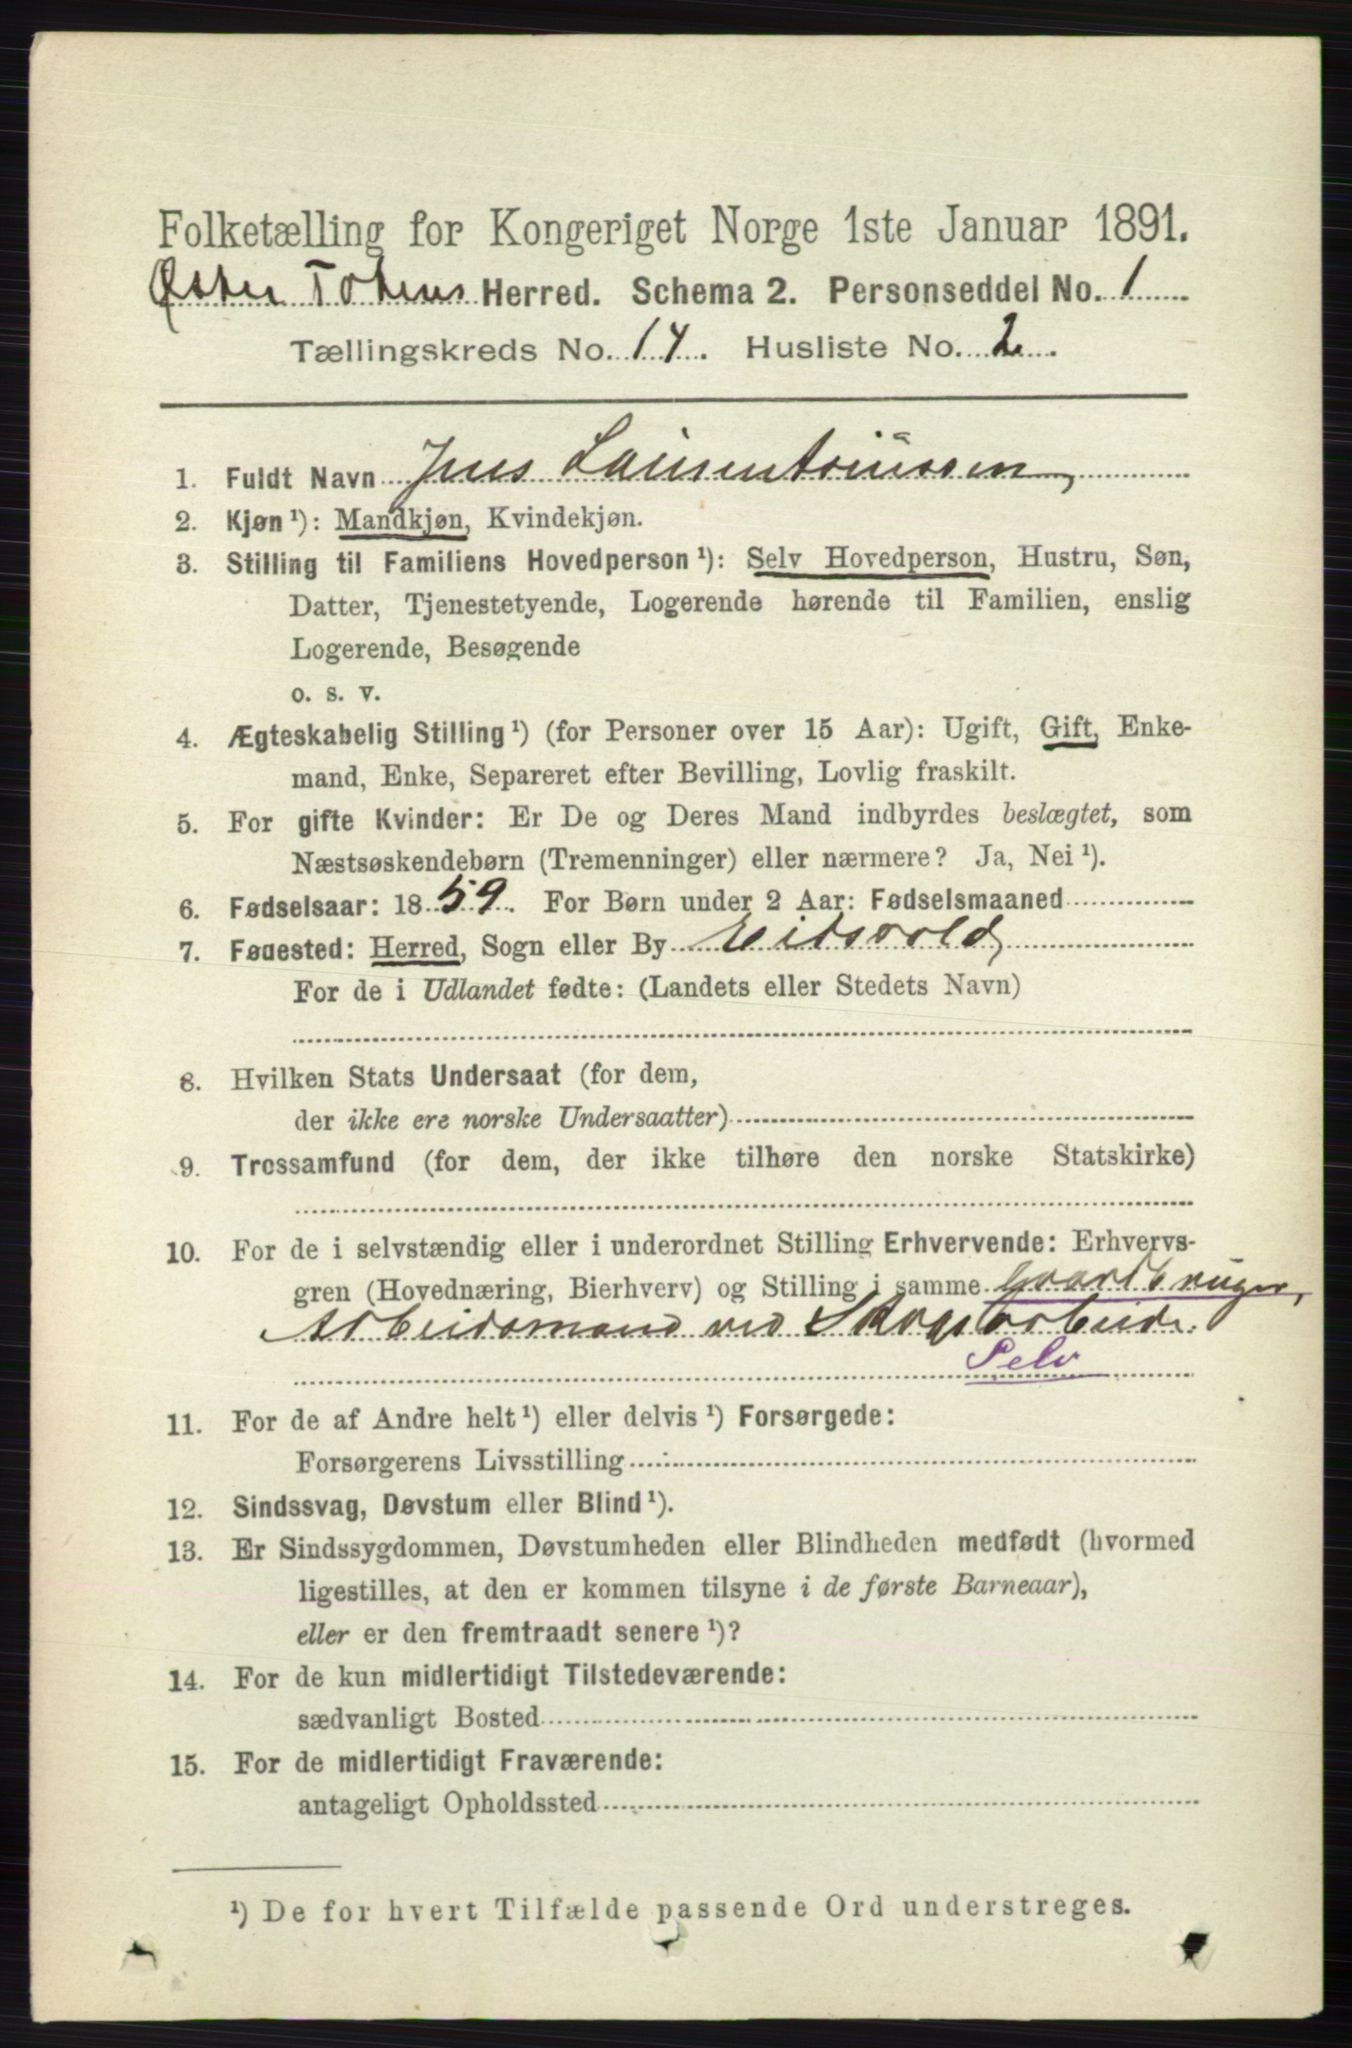 Folketælling for Kongeriget Norge 1ste Januar 1891.
Østre Totens Herred. Schema 2. Personseddel No. 1
Tællingskreds No. 14. Husliste No. 2.
1. Fuldt Navn Jens Laurentsiussen
2. Kjøn ¹): Mandkjøn, Kvindekjøn.
3. Stilling til Familiens Hovedperson ¹): Selv Hovedperson, Hustru, Søn,
Datter, Tjenestetyende, Logerende hørende til Familien, enslig
Logerende, Besøgende
o. s. v.
4. Ægteskabelig Stilling ¹) (for Personer over 15 Aar): Ugift, Gift, Enke-
mand, Enke, Separeret efter Bevilling, Lovlig fraskilt.
5. For gifte Kvinder: Er De og Deres Mand indbyrdes beslægtet, som
Næstsøskendebørn (Tremenninger) eller nærmere? Ja, Nei ¹).
6. Fødselsaar: 1859. For Børn under 2 Aar: Fødselsmaaned
7. Fødested: Herred, Sogn eller By Eidsvold
For de i Udlandet fødte: (Landets eller Stedets Navn)
8. Hvilken Stats Undersaat (for dem,
der ikke ere norske Undersaatter)
9. Trossamfund (for dem, der ikke tilhøre den norske Statskirke)
10. For de i selvstændig eller i underordnet Stilling Erhvervende: Erhvervs-
gren (Hovednæring, Bierhverv) og Stilling i samme Gaardbruger,
Arbeidsmand ved Skogsarbeide.
Selv
11. For de af Andre helt ¹) eller delvis ¹) Forsørgede:
Forsørgerens Livsstilling
12. Sindssvag, Døvstum eller Blind ¹).
13. Er Sindssygdommen, Døvstumheden eller Blindheden medfødt (hvormed
ligestilles, at den er kommen tilsyne i de første Barneaar),
eller er den fremtraadt senere ¹)?
14. For de kun midlertidigt Tilstedeværende:
sædvanligt Bosted
15. For de midlertidigt Fraværende:
antageligt Opholdssted
¹) De for hvert Tilfælde passende Ord understreges.